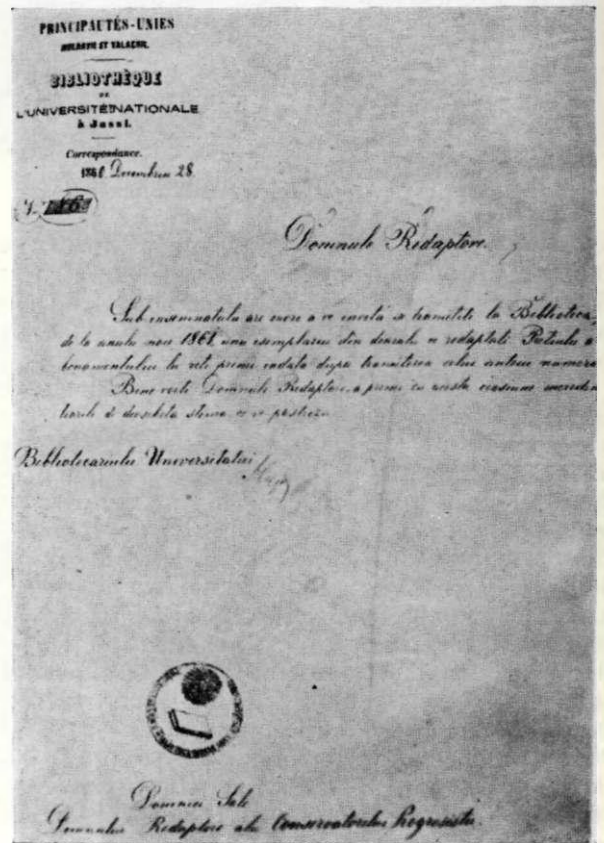 PRINCIPAUTÉS-UNIES
MOLDAVIE ET VALACHIE.
BIBLIOTHÈQUE
DE
L'UNIVERSITÉ NATIONALE
à Jassi.
Correspondance.
186 Decembriu 28.
Domnule Redaptore.
Sub insemnatulu are onore a ve invită se tramiteti la Bibliotheca,
de la anulu nou 1861, unu esemplariu din diarulu ce redaptati. Pretiulu a
bonamentului lu veti primi indata dupa tramiterea celui anteiu numeru
Bine voiti Domnule Redaptore, a primi cu acesta ocasiune incredin
tiarile de deosebita stima ce ve pastrezu.
Bibliotecariulu Universitatei
Domniei Sale
Domnului Redaptore alu Conservatorului Progresistu.